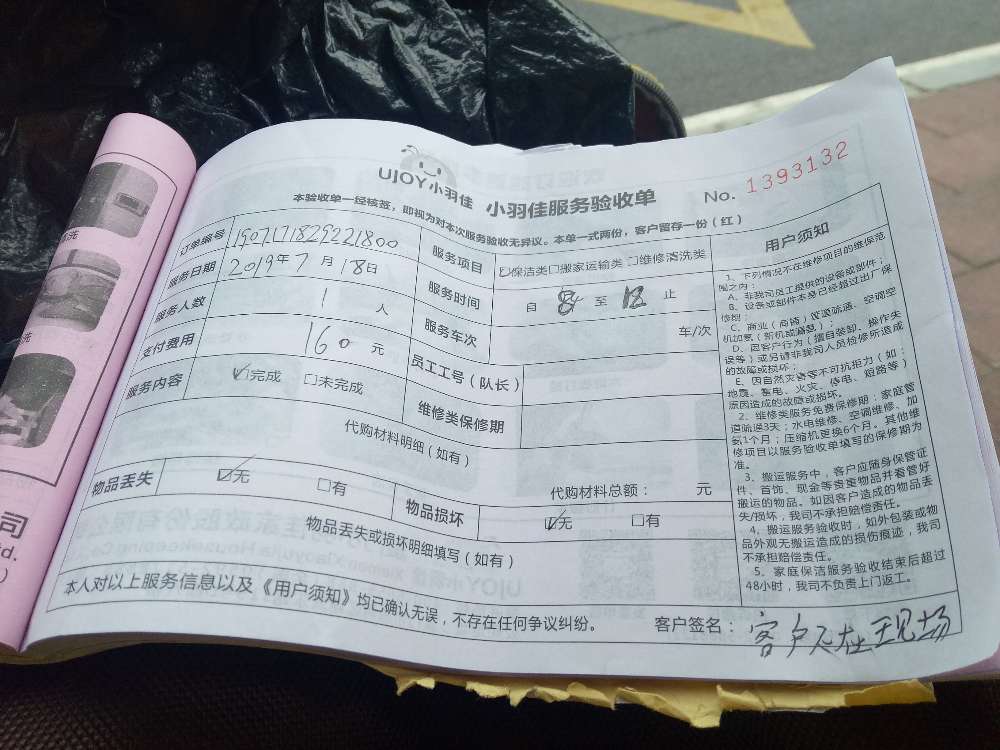 UJOY小羽佳 小羽佳服务验收单 No. 1393132
本验收单一经核签，即视为对本次服务验收无异议。本单一式两份，客户留存一份（红）
订单编号 1907171829221800 服务项目 ☑保洁类□搬家运输类 □维修清洗类
服务日期 2019年7月18日 服务时间 自 8 至 12 止
服务人数 1 人 服务车次 车/次
支付费用 160 元 员工工号（队长）
服务内容 ☑完成 □未完成 维修类保修期
代购材料明细（如有）
代购材料总额： 元
物品丢失 ☑无 □有 物品损坏 ☑无 □有
物品丢失或损坏明细填写（如有）
本人对以上服务信息以及《用户须知》均已确认无误，不存在任何争议纠纷。
客户签名：客户不在现场
用户须知
1、下列情况不在维修项目的维保范
围之内：
A、非我司员工提供的设备或部件；
B、设备或部件本身已经超过出厂保
修期；
C、商业（商铺）管道疏通、空调空
机加氨（新机或满意）；
D、因客户行为（擅自装卸、操作失
误等）或另请非我司人员检修所造成
的故障或损坏；
E、因自然灾害等不可抗拒力（如：
地震、雷电、火灾、停电、短路等）
原因造成的故障或损坏。
2、维修类服务免费保修期：家庭管
道疏通3天；水电维修、空调维修、加
氨1个月；压缩机更换6个月。其他维
修项目以服务验收单填写的保修期为
准。
3、搬运服务中，客户应随身保管证
件、首饰、现金等贵重物品并看管好
搬运的物品。如因客户造成的物品丢
失/损坏，我司不承担赔偿责任。
4、搬运服务验收时，如外包装或物
品外观无搬运造成的损伤痕迹，我司
不承担赔偿责任。
5、家庭保洁服务验收结束后超过
48小时，我司不负责上门返工。
洗
司
td.